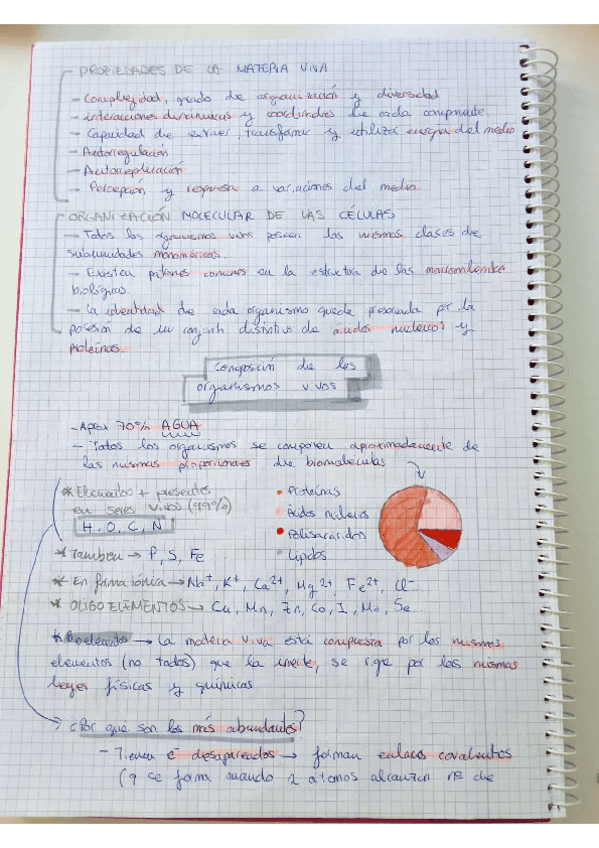 PROPIEDADES DE LA MATERIA VIVA
- Complejidad, grado de organización y diversidad
- interacciones dinámicas y coordinadas de cada componente
- Capacidad de extraer, transformar y utilizar energía del medio
- Autorregulación
- Autorreplicación
- Percepción y respuesta a variaciones del medio.
ORGANIZACIÓN MOLECULAR DE LAS CÉLULAS
- Todos los organismos vivos poseen las mismas clases de
subunidades monoméricas.
- Existen patrones comunes en la estructura de las macromoléculas
biológicas.
- La identidad de cada organismo queda preservada por la
posesión de un conjunto distintivo de ácidos nucleicos y
proteínas.
Composición de los
organismos vivos
- Aprox 70% AGUA
- Todos los organismos se componen aproximadamente de
las mismas proporciones de biomoléculas
* Elementos + presentes
en seres vivos (99%)
H, O, C, N
• Proteínas
• Ácidos nucleicos
• Polisacáridos
• Lípidos
* También → P, S, Fe
* En forma iónica → Na+, K+, Ca2+, Mg2+, Fe2+, Cl-
* OLIGOELEMENTOS → Cu, Mn, Zn, Co, I, Mo, Se
* Bioelementos → La materia viva está compuesta por los mismos
elementos (no todos) que la inerte, se rige por las mismas
leyes físicas y químicas
¿Por qué son los más abundantes?
- Tienen e- desapareados → forman enlaces covalentes
(q se forma cuando 2 átomos alcanzan nº de